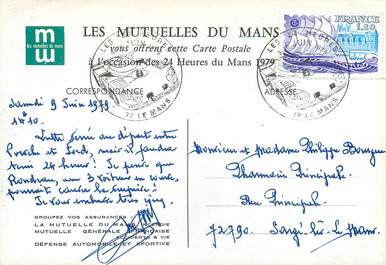 LES MUTUELLES DU MANS
vous offrent cette Carte Postale
à l'occasion des 24 Heures du Mans 1979
mw
les mutuelles du mans
FRANCE
1,20
JUIN
72 LE MANS
72 LE MANS
CORRESPONDANCE
ADRESSE
Samedi 9 Juin 1979
Lutte serrée au départ entre
Porsche et Ford, mais il faudra
tenir 24 heures! Je pense que
Rondeau, avec 3 voitures en course,
pourrait causer la surprise!
Je vous embrasse très fort
Monsieur et Madame Philippe
Pharmacie Principale
Rue Principale
72790. Sargé-lès-le Mans.
GROUPEZ VOS ASSURANCES
LA MUTUELLE DU MANS
MUTUELLE GÉNÉRALE FRANÇAISE
ACCIDENTS & VIE
DÉFENSE AUTOMOBILE ET SPORTIVE